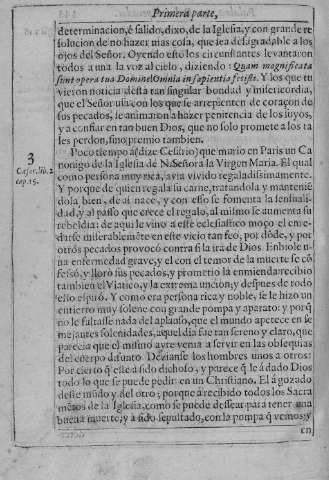 Primera parte,
determinacion, è salido, dixo, de la Iglesia, y con grande re
solucion de no hazer mas cosa, que sea desagradable a los
ojos del Señor. Oyendo esto los circunstantes levantaron
todos a una la voz al cielo, diziendo: Quam magnificata
sunt opera tua Domine! Omnia in sapientia fecisti. Y los que tu
vieron noticia desta tan singular bondad y misericordia,
que el Señor usa con los que se arrepienten de coraçon de
sus pecados, se animaron a hazer penitencia de los suyos,
y a confiar en tan buen Dios, que no solo promete a los ta
les perdon, sino premio tambien.
3
Cesar. lib. 2
cap. 15.
Poco tiempo à (dize Cesario) que murio en Paris un Ca
nonigo de la Iglesia de N. Señora la Virgen Maria. El qual
como persona muy rica, avia vivido regaladissimamente.
Y porque de quien regala su carne, tratandola y mantenié
dola bien, de aì nace, y con esso se fomenta la sensuali
dad, y al passo que crece el regalo, al mismo se aumenta su
rebeldia: de aqui le vino a este eclesiastico moço el enco-
darse miserablemẽte en este vicio tan feo, por dõde, y por
otros pecados provocò contra si la ira de Dios. Enbiole u-
na enfermedad grave, y el con el temor de la muerte se cõ
fessò, y llorò sus pecados, y prometio la enmienda: recibio
tambien el Viatico, y la extrema uncion; y despues de todo
esto espirò. Y como era persona rica y noble, se le hizo un
entierro muy solene con grande pompa y aparato: y porq̃
no le faltasse nada del aplauso, que el mundo apetece en se
mejantes solenidades, aquel dia fue tan sereno y claro, que
parecia que el mismo ayre venia a servir en las obsequias
del cuerpo difunto. Deziense los hombres unos a otros:
Por cierto q̃ este à sido dichoso, y parece q̃ le à dado Dios
todo lo que se puede pedir en un Christiano. El à gozado
deste mũdo y del otro; porque à recibido todos los Sacra
mẽtos de la Iglesia, como se puede dessear para tener una
buena muerte; y à sido sepultado, con la pompa q̃ vemos; y
en